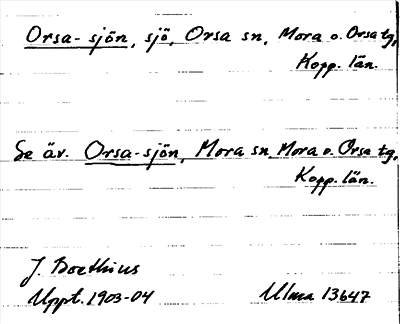 Orsa-sjön, sjö, Orsa sn, Mora o. Orsa tg,
Kopp. län.
Se äv. Orsa-sjön, Mora sn, Mora o. Orsa tg,
Kopp. län.
J. Boethius
Uppt. 1903-04 Ulma 13647